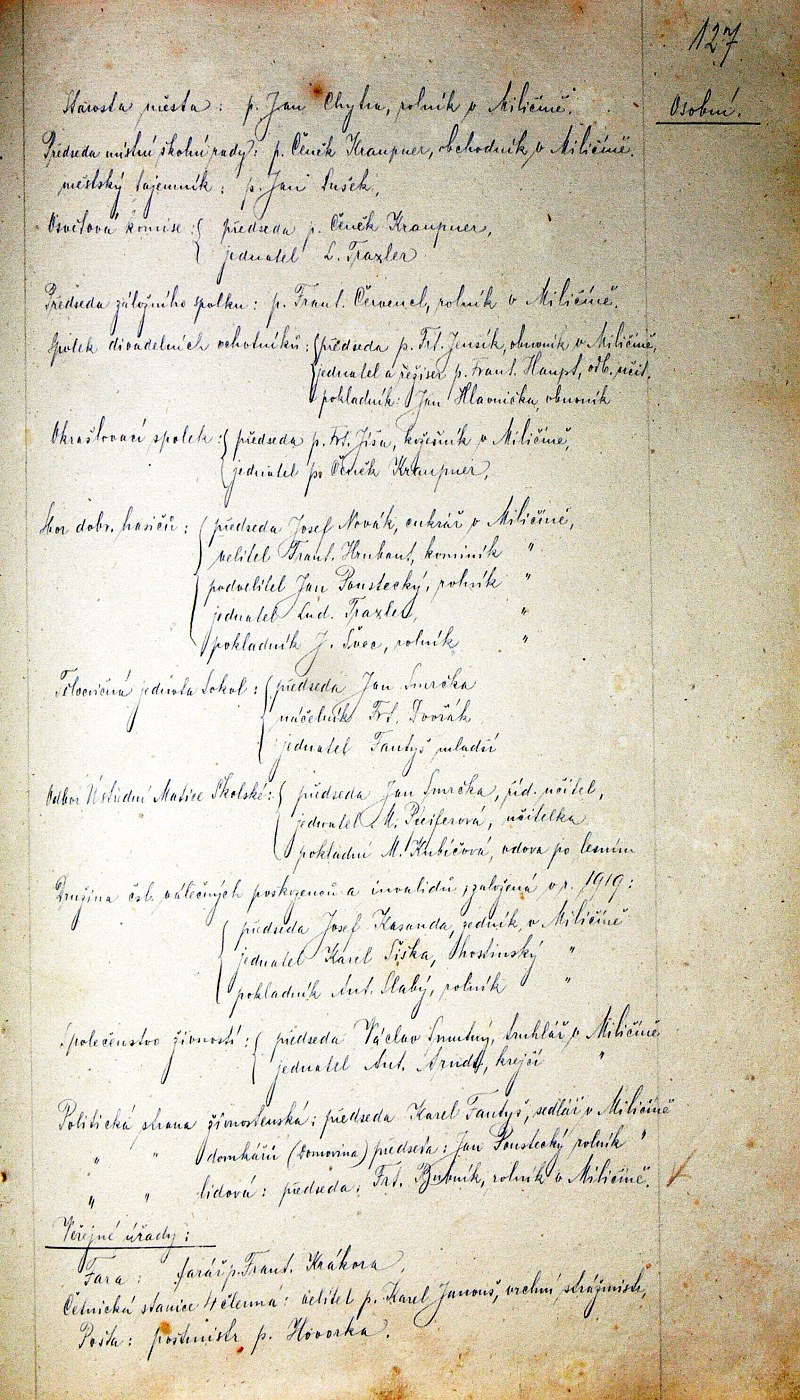 127
Starosta města: p. Jan Chytra, rolník v Miličíně.
Osobní.
Předseda místní školní rady: p. Čeněk Kraupner, obchodník v Miličíně.
městský tajemník: p. Jan Dušek,
Osvětová komise: { předseda p. Čeněk Kraupner,
jednatel L. Trazler
Předseda záložního spolku: p. Frant. Červencl, rolník v Miličíně.
Spolek divadelních ochotníků: { předseda p. Frt. Jensík, obuvník v Miličíně,
jednatel a režiser p. Frant. Haupt, odb. učit.
pokladník: Jan Hlavnička, obuvník
Okrašlovací spolek: { předseda p. Frt. Jíša, kožešník v Miličíně,
jednatel p. Čeněk Kraupner,
Sbor dobr. hasičů: { předseda Josef Novák, cukrář v Miličíně,
velitel Frant. Hrubant, kominík "
podvelitel Jan Poustecký, rolník "
jednatel Lud. Trazler, "
pokladník J. Švec, rolník "
Tělocvičná jednota Sokol: { předseda Jan Smrčka
náčelník Frt. Dvořák
jednatel Fantyš mladší
Odbor Ústřední Matice Školské: { předseda Jan Smrčka, říd. učitel,
jednatel M. učitelka
pokladní M. Kubíčová, vdova po lesním
Družina čsl. válečných poškozenců a invalidů, založená v r. 1919:
předseda Josef Kasanda, zedník, v Miličíně
jednatel Karel Šiška, hostinský "
pokladník Ant. Slabý, rolník "
Společenstvo živností: { předseda Václav Smutný, truhlář v Miličíně
jednatel Ant. krejčí "
Politická strana živnostenská: předseda Karel Fantyš, sedlář v Miličíně
" " domkářů (Domovina) předseda: Jan Poustecký rolník "
" " lidová: předseda: Frt. Bubník, rolník v Miličíně.
Veřejné úřady:
Fara: farář p. Frant. Krákora,
Četnická stanice 4členná: velitel p. Karel Janouš, vrchní strážmistr,
Pošta: poštmistr p. Hovorka.